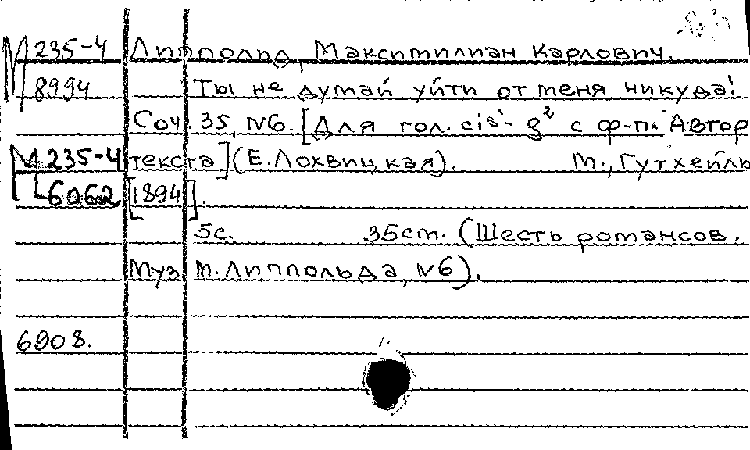 М 235-4 Липпольд, Максимилиан Карлович.
8994 Ты не думай уйти от меня никуда!
Соч. 35, №6. [Для гол. cis¹-g² с ф-п. Автор
М 235-4 текста] (Е. Лохвицкая). М., Гутхейль
6062 [1894].
5с. 35см. (Шесть романсов.
Муз. М. Липпольда, №6).
6908.